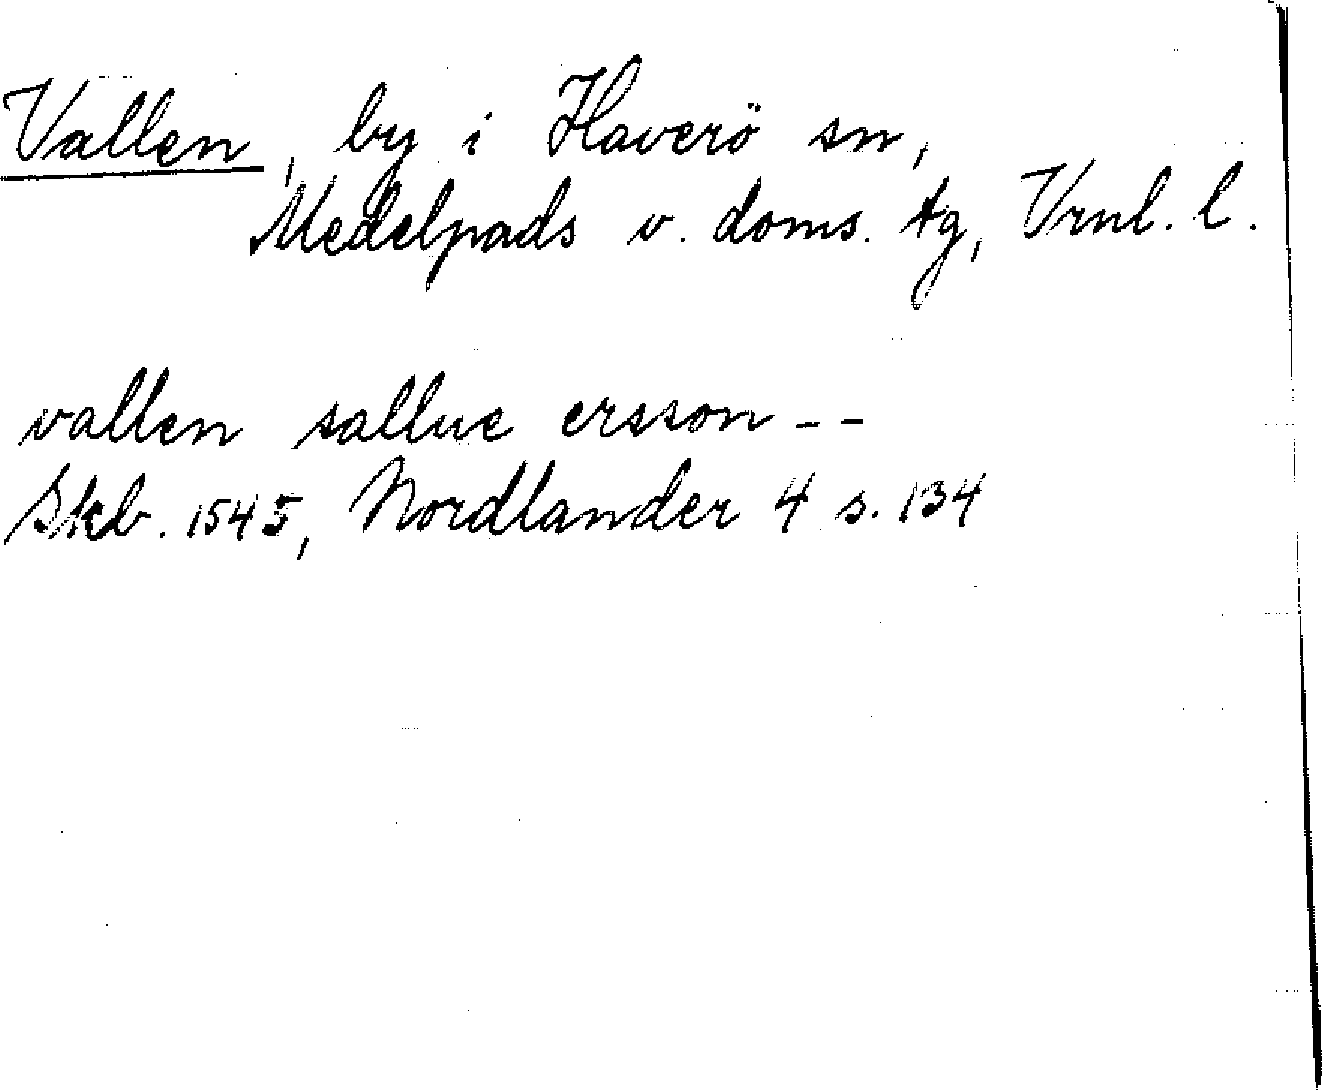 Vallen, by i Haverö sn,
Medelpads v. doms. tg, Vrnl. l.
vallen sallue ersson --
Skb. 1545, Nordlander 4 s. 134